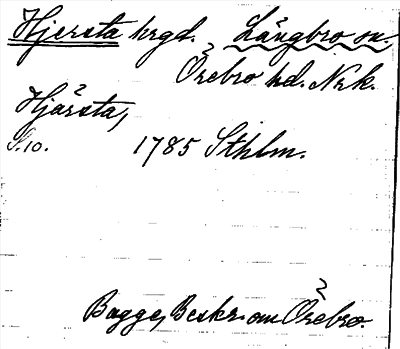 Hjersta hrgd. Längbro sn.
Örebro hd. Nrk.
Hjärsta,
S. 10. 1785 Sthlm.
Bagge, Beskr. om Örebro.